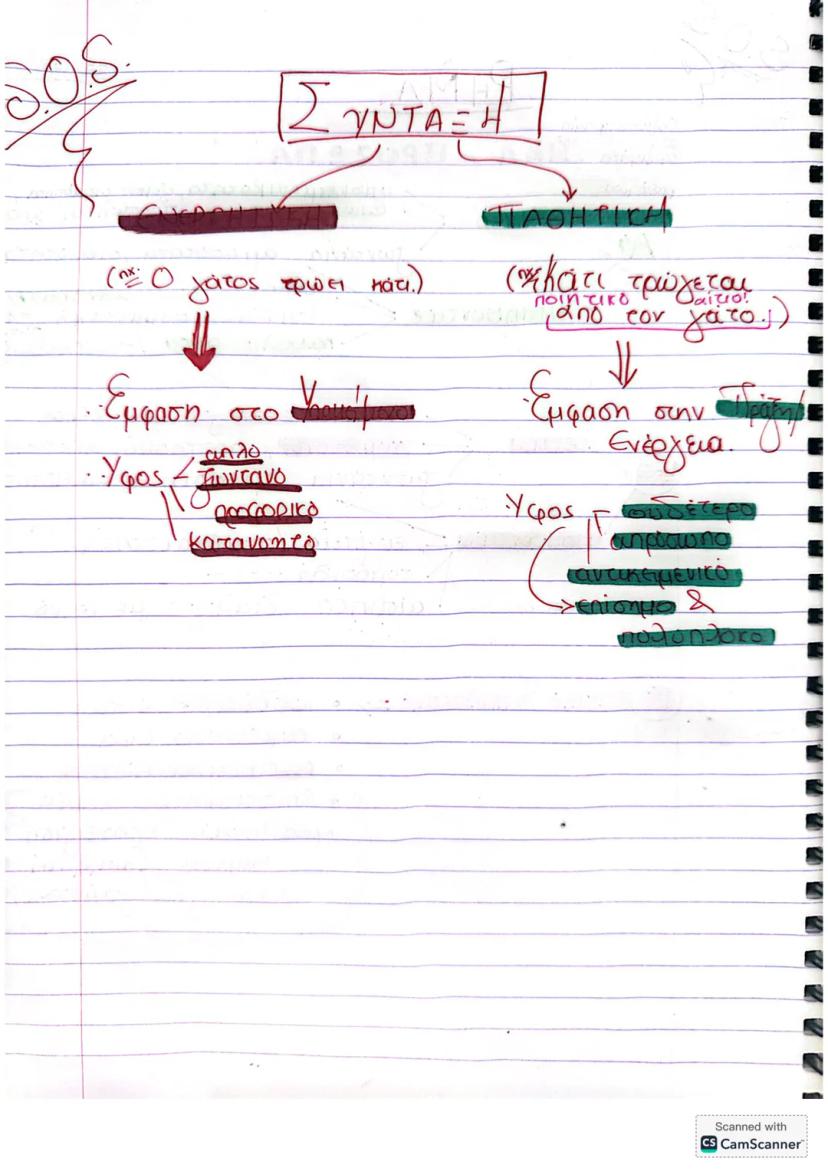 S.O.S.
ΣΥΝΤΑΞΗ
ΕΝΕΡΓΗΤΙΚΗ
(πχ: Ο γάτος τρώει κάτι.)
Έμφαση στο
Ύφος
απλό
ζωντανό
προφορικό
κατανοητό
ΠΑΘΗΤΙΚΗ
(πχ: Κάτι τρώγεται
ποιητικό αίτιο!
από τον γάτο.)
Έμφαση στην Πράξη/
Ενέργεια.
Ύφος
ουδέτερο
απρόσωπο
αντικειμενικό
επίσημο &
πολύπλοκο
Scanned with
CS CamScanner